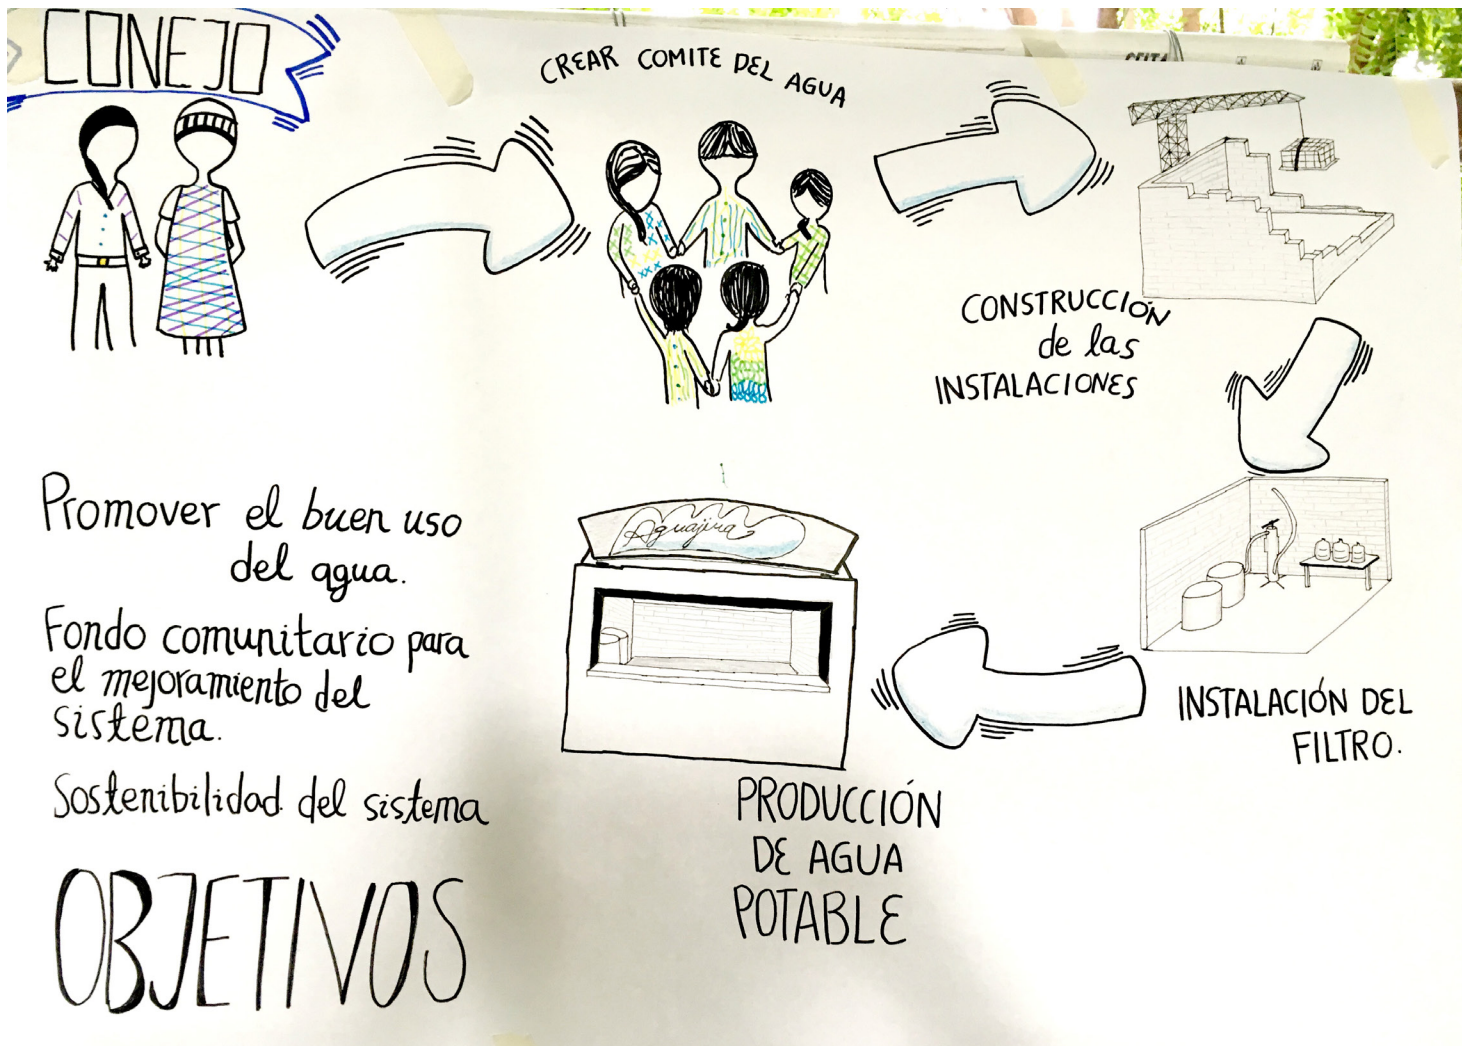 CONEJO
CREAR COMITE DEL AGUA
CONSTRUCCIÓN
de las
INSTALACIONES
INSTALACIÓN DEL
FILTRO.
Aguajira
PRODUCCIÓN
DE AGUA
POTABLE
Promover el buen uso
del agua.
Fondo comunitario para
el mejoramiento del
sistema.
Sostenibilidad del sistema
OBJETIVOS